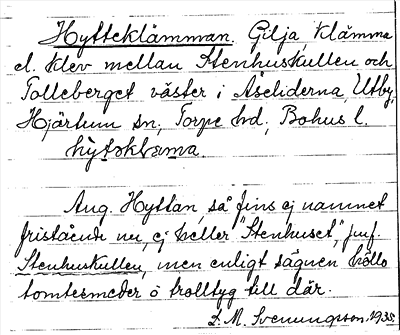 Hytteklämman. Gilja, klämma
el. klev mellan Stenhuskullen och
Tolleberget väster i Åseliderna, Utby,
Hjärtum sn, Torpe hd, Bohus l.
Ang. Hyttan, så fins ej namnet
fristående nu, ej heller "Stenhuset", jmf.
Stenhuskullen, men enligt sägnen höllo
tomtesmeder o trolltyg till där.
Z. M. Svenungsson. 1935